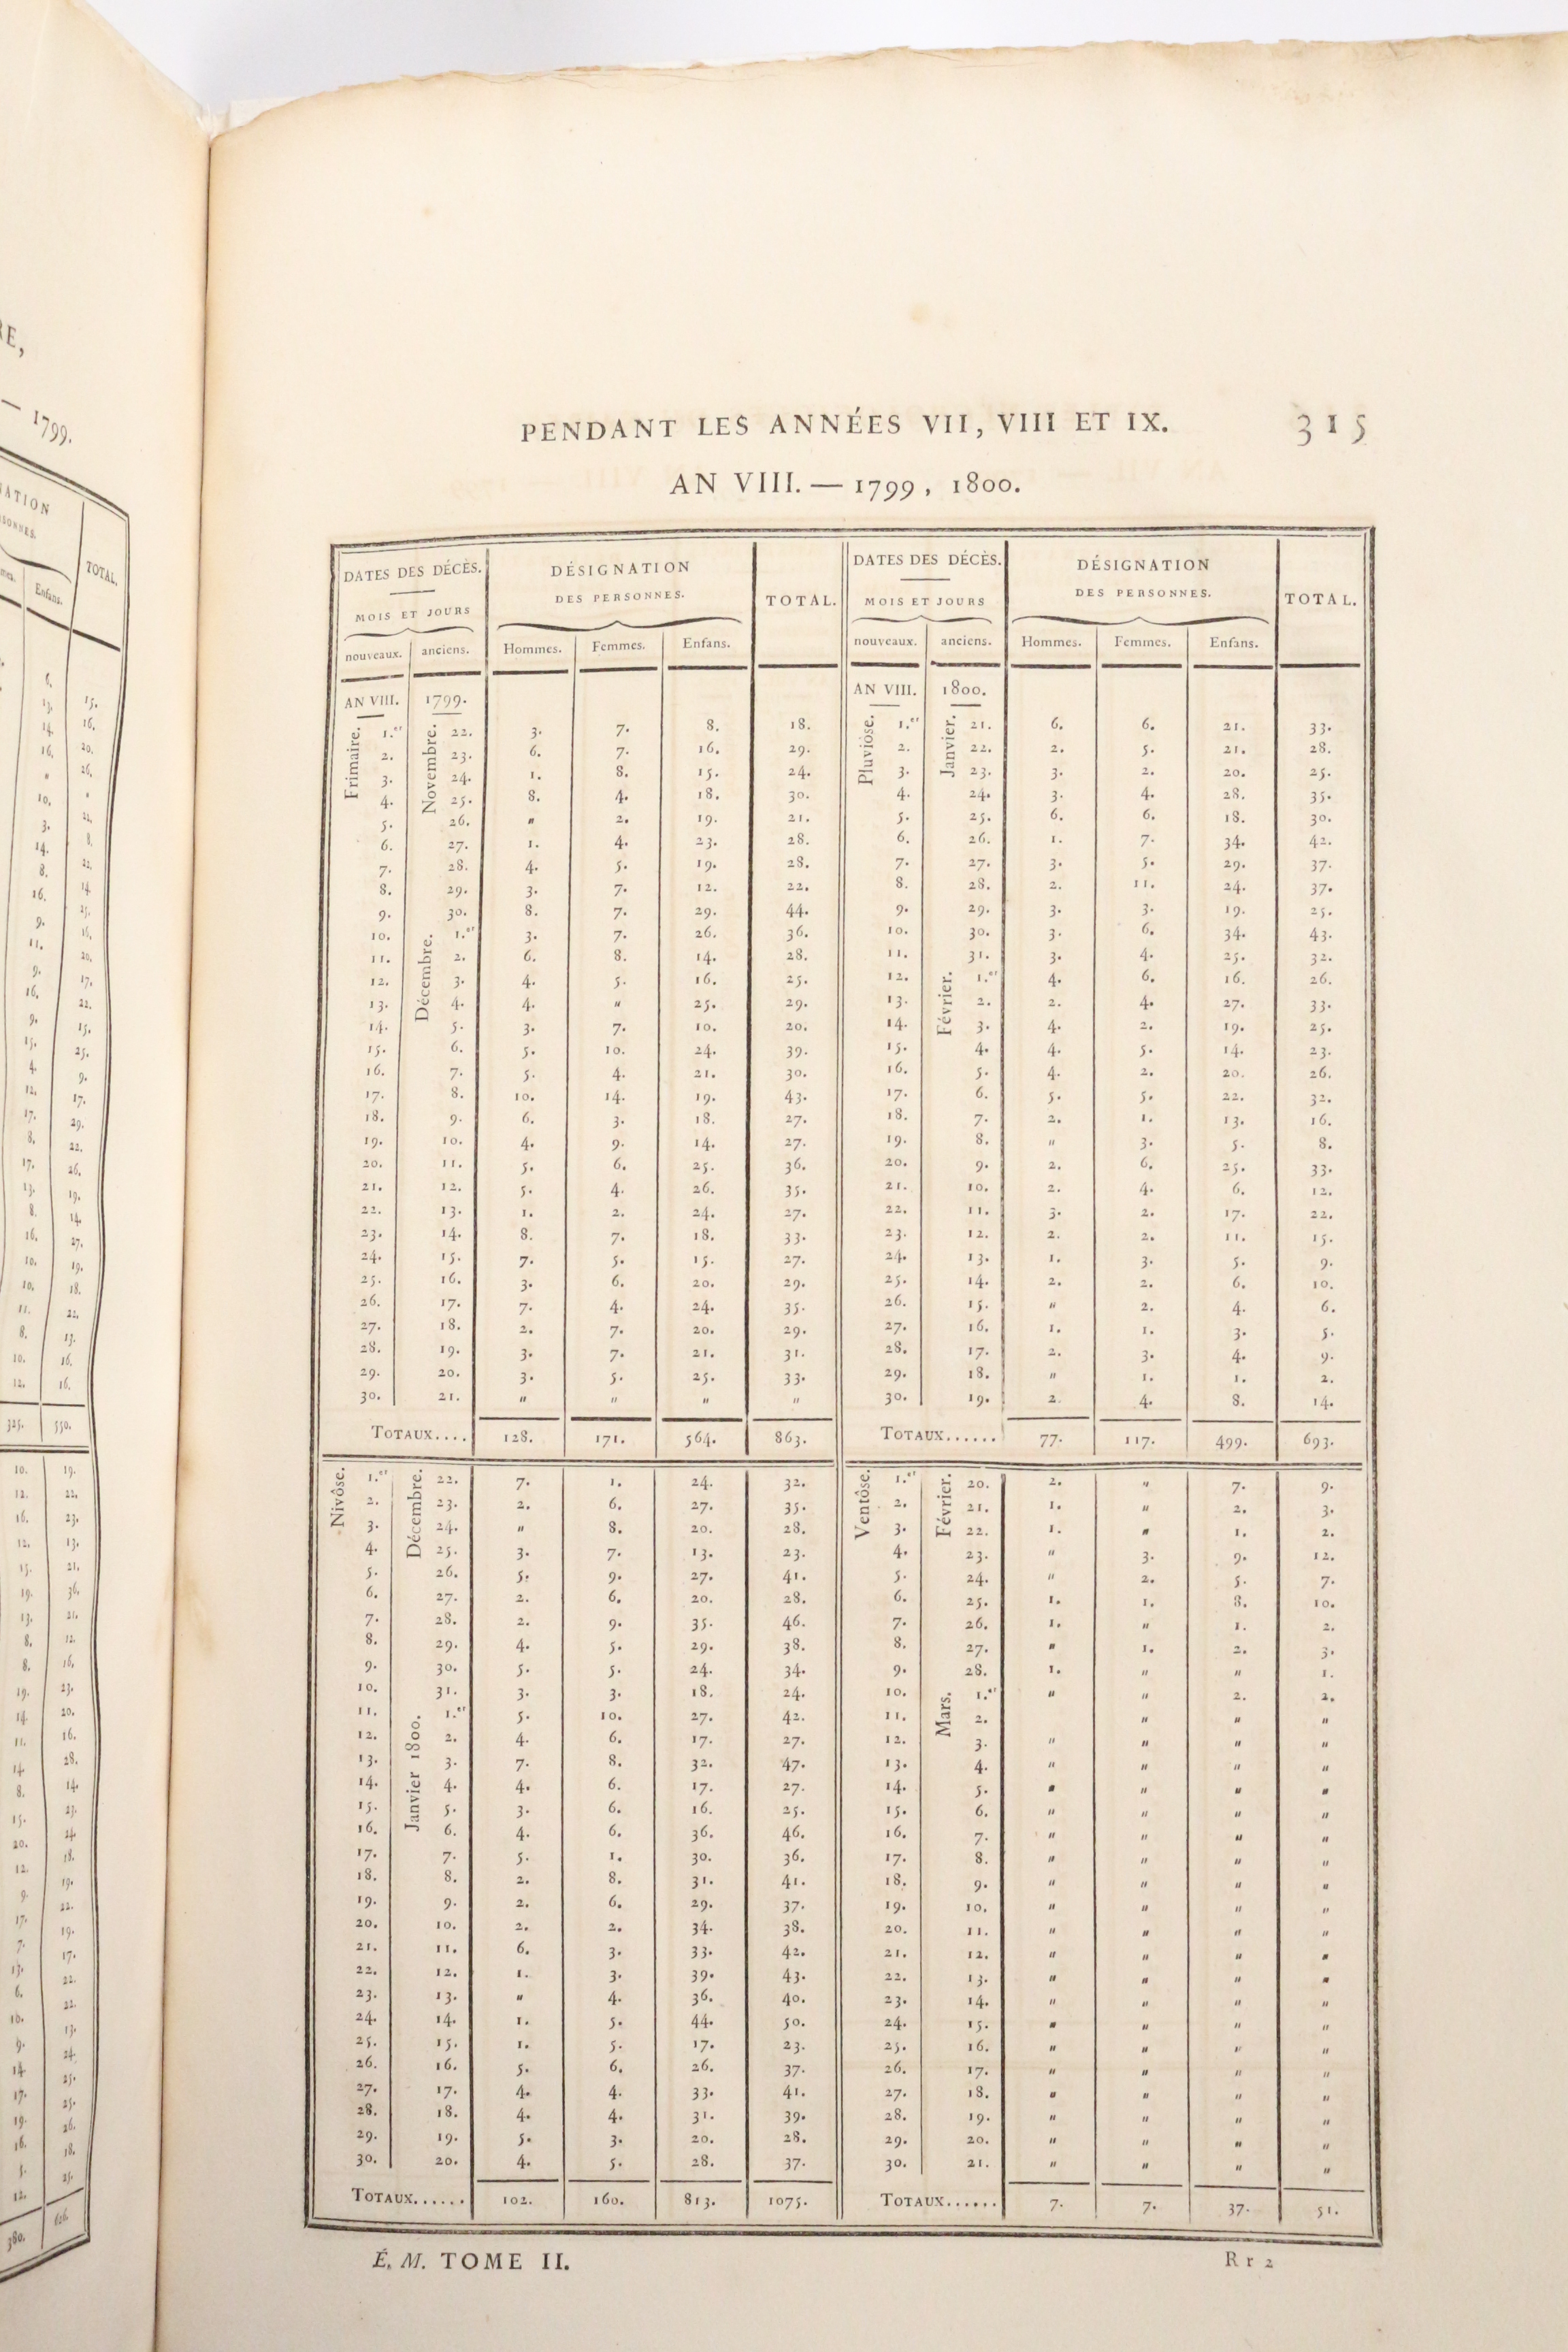 1799.
TOTAL.
Enfans.
PENDANT LES ANNÉES VII, VIII ET IX. 315
AN VIII. — 1799, 1800.
DATES DES DÉCÈS. DÉSIGNATION DES PERSONNES. TOTAL. DATES DES DÉCÈS. DÉSIGNATION DES PERSONNES. TOTAL.
MOIS ET JOURS MOIS ET JOURS
nouveaux. anciens. Hommes. Femmes. Enfans. nouveaux. anciens. Hommes. Femmes. Enfans.
AN VIII. 1799. AN VIII. 1800.
Frimaire. 1.er Novembre. 22. 3. 7. 8. 18. Pluviôse. 1.er Janvier. 21. 6. 6. 21. 33.
2. 23. 6. 7. 16. 29. 2. 22. 2. 5. 21. 28.
3. 24. 1. 8. 15. 24. 3. 23. 3. 2. 20. 25.
4. 25. 8. 4. 18. 30. 4. 24. 3. 4. 28. 35.
5. 26. " 2. 19. 21. 5. 25. 6. 6. 18. 30.
6. 27. 1. 4. 23. 28. 6. 26. 1. 7. 34. 42.
7. 28. 4. 5. 19. 28. 7. 27. 3. 5. 29. 37.
8. 29. 3. 7. 12. 22. 8. 28. 2. 11. 24. 37.
9. 30. 8. 7. 29. 44. 9. 29. 3. 3. 19. 25.
10. Décembre. 1.er 3. 7. 26. 36. 10. 30. 3. 6. 34. 43.
11. 2. 6. 8. 14. 28. 11. 31. 3. 4. 25. 32.
12. 3. 4. 5. 16. 25. 12. Février. 1.er 4. 6. 16. 26.
13. 4. 4. " 25. 29. 13. 2. 2. 4. 27. 33.
14. 5. 3. 7. 10. 20. 14. 3. 4. 2. 19. 25.
15. 6. 5. 10. 24. 39. 15. 4. 4. 5. 14. 23.
16. 7. 5. 4. 21. 30. 16. 5. 4. 2. 20. 26.
17. 8. 10. 14. 19. 43. 17. 6. 5. 5. 22. 32.
18. 9. 6. 3. 18. 27. 18. 7. 2. 1. 13. 16.
19. 10. 4. 9. 14. 27. 19. 8. " 3. 5. 8.
20. 11. 5. 6. 25. 36. 20. 9. 2. 6. 25. 33.
21. 12. 5. 4. 26. 35. 21. 10. 2. 4. 6. 12.
22. 13. 1. 2. 24. 27. 22. 11. 3. 2. 17. 22.
23. 14. 8. 7. 18. 33. 23. 12. 2. 2. 11. 15.
24. 15. 7. 5. 15. 27. 24. 13. 1. 3. 5. 9.
25. 16. 3. 6. 20. 29. 25. 14. 2. 2. 6. 10.
26. 17. 7. 4. 24. 35. 26. 15. " 2. 4. 6.
27. 18. 2. 7. 20. 29. 27. 16. 1. 1. 3. 5.
28. 19. 3. 7. 21. 31. 28. 17. 2. 3. 4. 9.
29. 20. 3. 5. 25. 33. 29. 18. " 1. 1. 2.
30. 21. " " " " 30. 19. 2. 4. 8. 14.
TOTAUX.... 128. 171. 564. 863. TOTAUX...... 77. 117. 499. 693.
Nivôse. 1.er Décembre. 22. 7. 1. 24. 32. Ventôse. 1.er Février. 20. 2. " 7. 9.
2. 23. 2. 6. 27. 35. 2. 21. 1. " 2. 3.
3. 24. " 8. 20. 28. 3. 22. 1. " 1. 2.
4. 25. 3. 7. 13. 23. 4. 23. " 3. 9. 12.
5. 26. 5. 9. 27. 41. 5. 24. " 2. 5. 7.
6. 27. 2. 6. 20. 28. 6. 25. 1. 1. 8. 10.
7. 28. 2. 9. 35. 46. 7. 26. 1. " 1. 2.
8. 29. 4. 5. 29. 38. 8. 27. " 1. 2. 3.
9. 30. 5. 5. 24. 34. 9. 28. 1. " " 1.
10. 31. 3. 3. 18. 24. 10. Mars. 1.er " " 2. 2.
11. Janvier 1800. 1.er 5. 10. 27. 42. 11. 2. " " "
12. 2. 4. 6. 17. 27. 12. 3. " " " "
13. 3. 7. 8. 32. 47. 13. 4. " " " "
14. 4. 4. 6. 17. 27. 14. 5. " " " "
15. 5. 3. 6. 16. 25. 15. 6. " " " "
16. 6. 4. 6. 36. 46. 16. 7. " " " "
17. 7. 5. 1. 30. 36. 17. 8. " " " "
18. 8. 2. 8. 31. 41. 18. 9. " " " "
19. 9. 2. 6. 29. 37. 19. 10. " " " "
20. 10. 2. 2. 34. 38. 20. 11. " " " "
21. 11. 6. 3. 33. 42. 21. 12. " " " "
22. 12. 1. 3. 39. 43. 22. 13. " " " "
23. 13. " 4. 36. 40. 23. 14. " " " "
24. 14. 1. 5. 44. 50. 24. 15. " " " "
25. 15. 1. 5. 17. 23. 25. 16. " " " "
26. 16. 5. 6. 26. 37. 26. 17. " " " "
27. 17. 4. 4. 33. 41. 27. 18. " " " "
28. 18. 4. 4. 31. 39. 28. 19. " " " "
29. 19. 5. 3. 20. 28. 29. 20. " " " "
30. 20. 4. 5. 28. 37. 30. 21. " " " "
TOTAUX...... 102. 160. 813. 1075. TOTAUX...... 7. 7. 37. 51.
É. M. TOME II. Rr 2